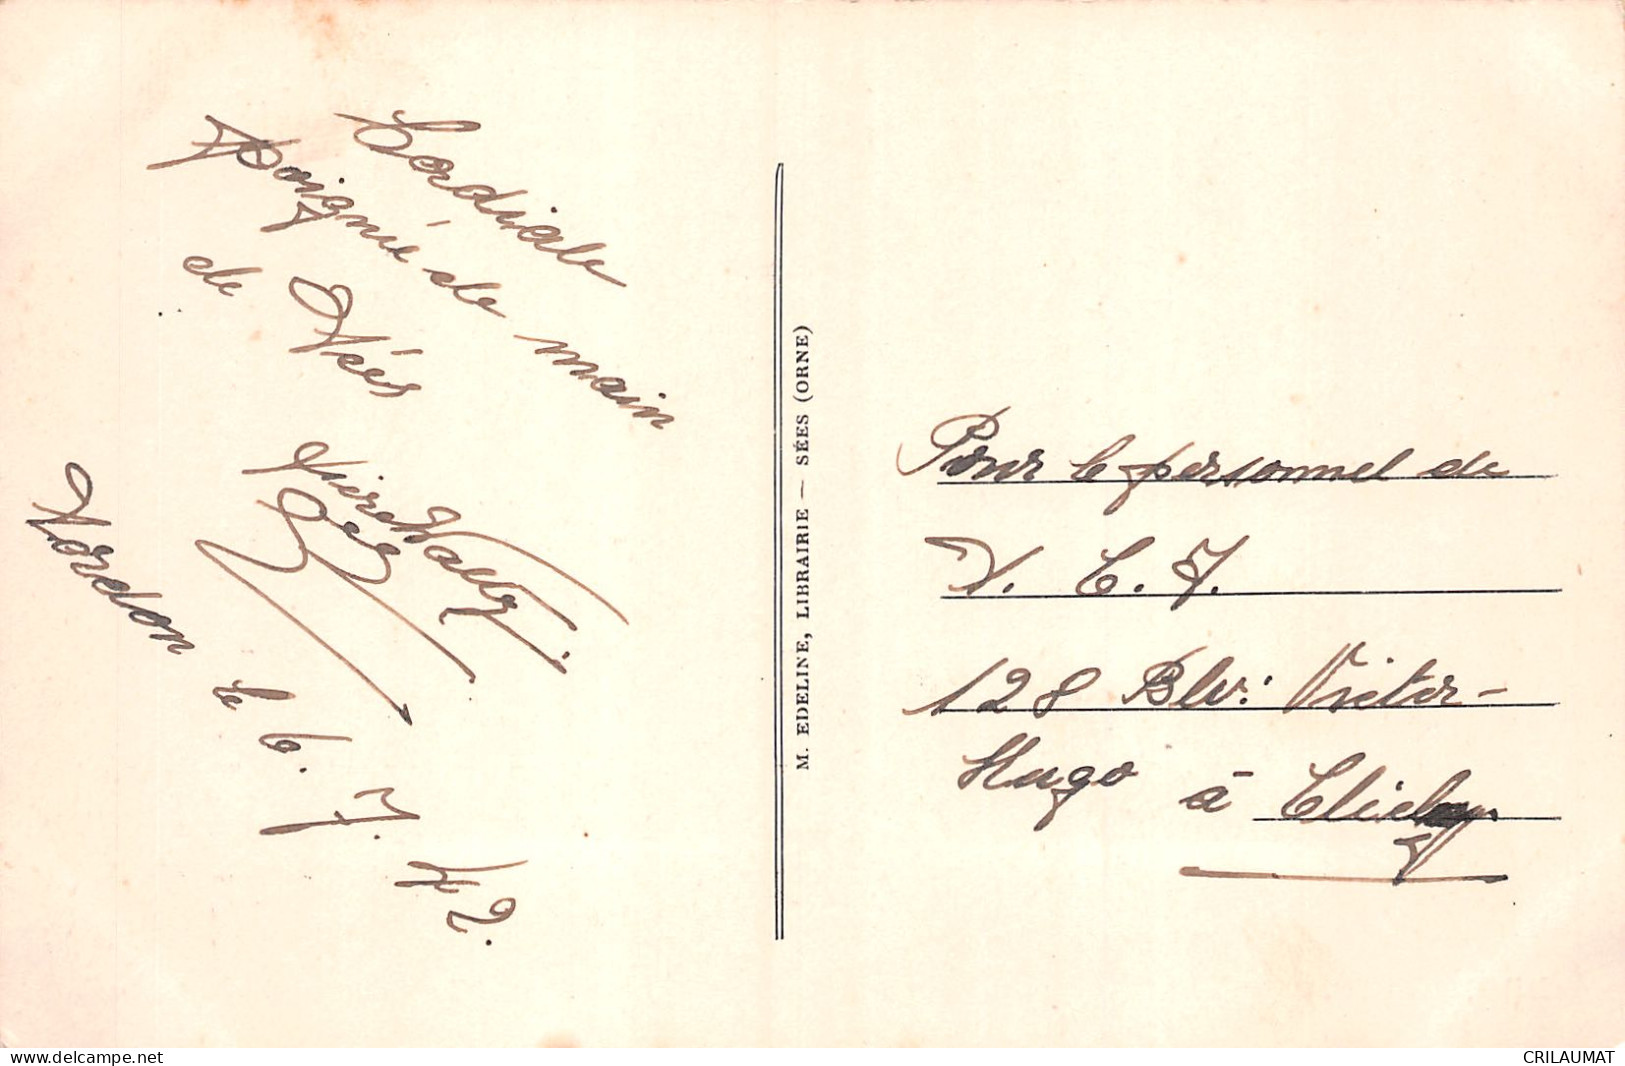 Cordiale
poignée de main
de Sées
le 6. 7. 42.
M. EDELINE, LIBRAIRIE — SÉES (ORNE)
Pour le personnel de
128 Blv: Victor-
Hugo à Clichy
delcampe.net
CRILAUMAT